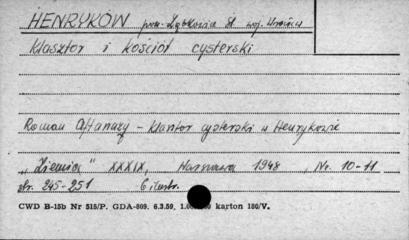 HENRYKÓW pow. Ząbkowice Śl woj. Wrocław
Klasztor i kościół cysterski
Roman Aftanazy - Klasztor cysterski w Henrykowie
„Ziemia" XXXIX, Warszawa 1948, Nr. 10-11
str. 245-251 6 ilustr.
CWD B-15b Nr 515/P. GDA-809. 6.3.59, karton 180/V.